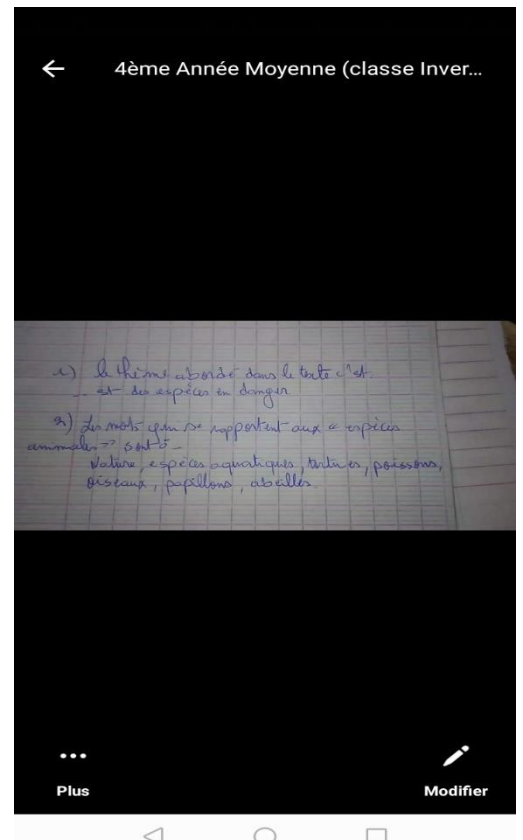 4ème Année Moyenne (classe Inver...
1) le thème abordé dans le texte c'est
est des espèces en danger
2) Les mots qui se rapportent aux « espèces
animales » sont :
Nature, espèces aquatiques, tortues, poissons,
oiseaux, papillons, abeilles.
Plus
Modifier